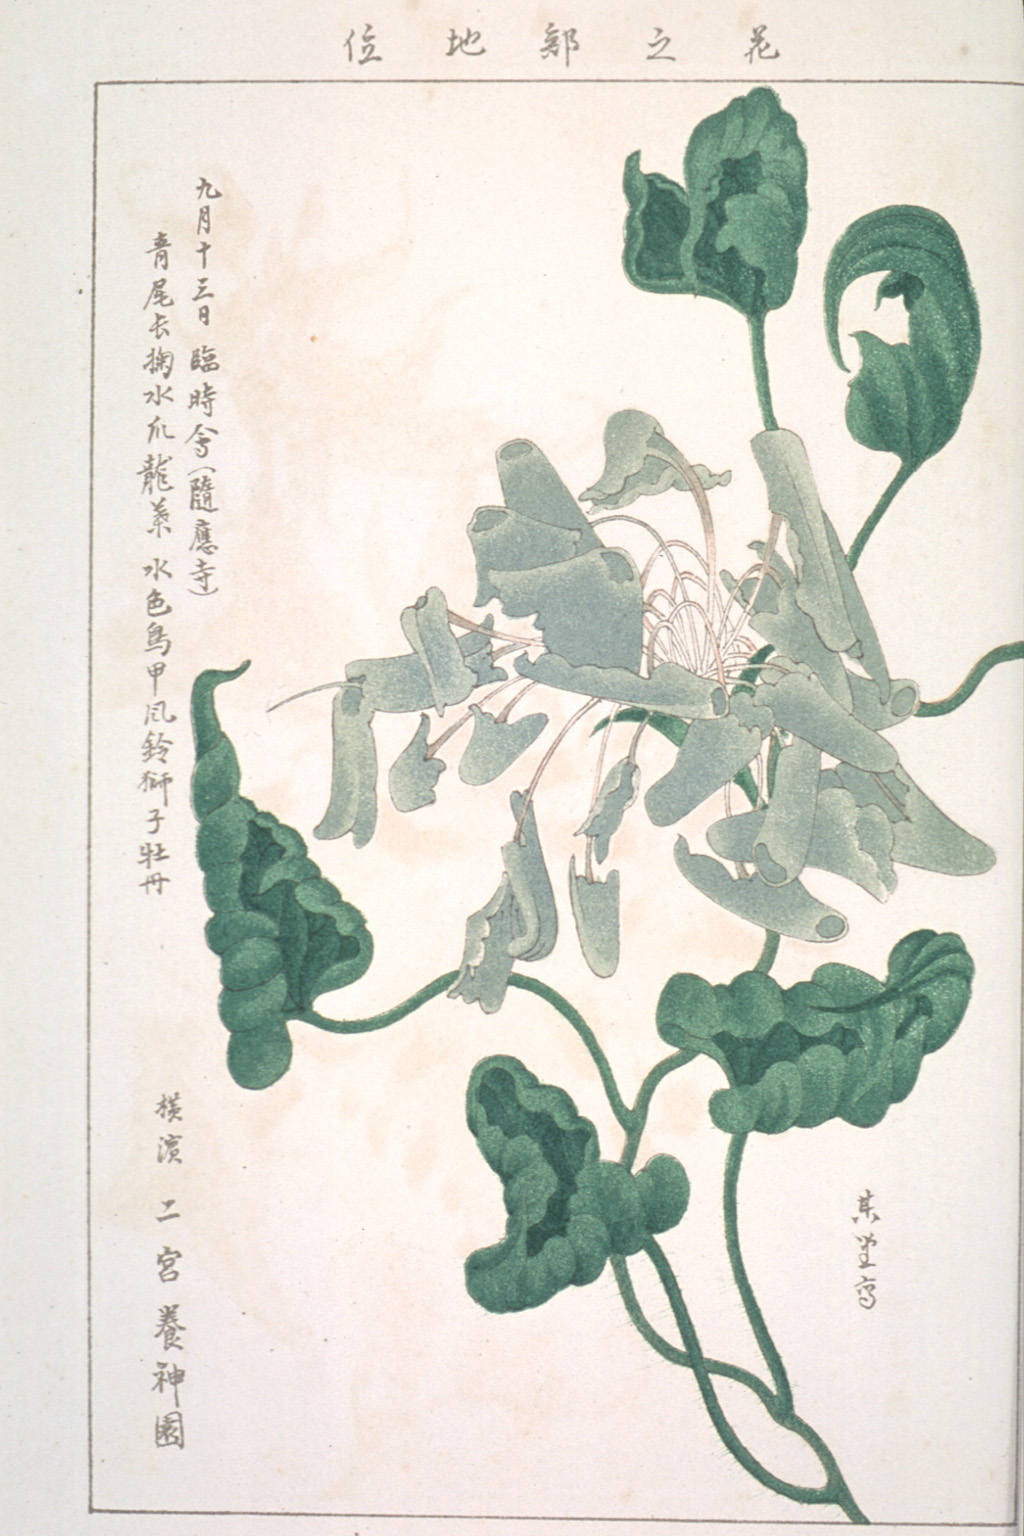 花之部地位
九月十三日 臨時會(隨應寺)
青尾長掬水爪龍葉 水色鳥甲風鈴獅子牡丹
横濱 二宮養神園
其堂寫